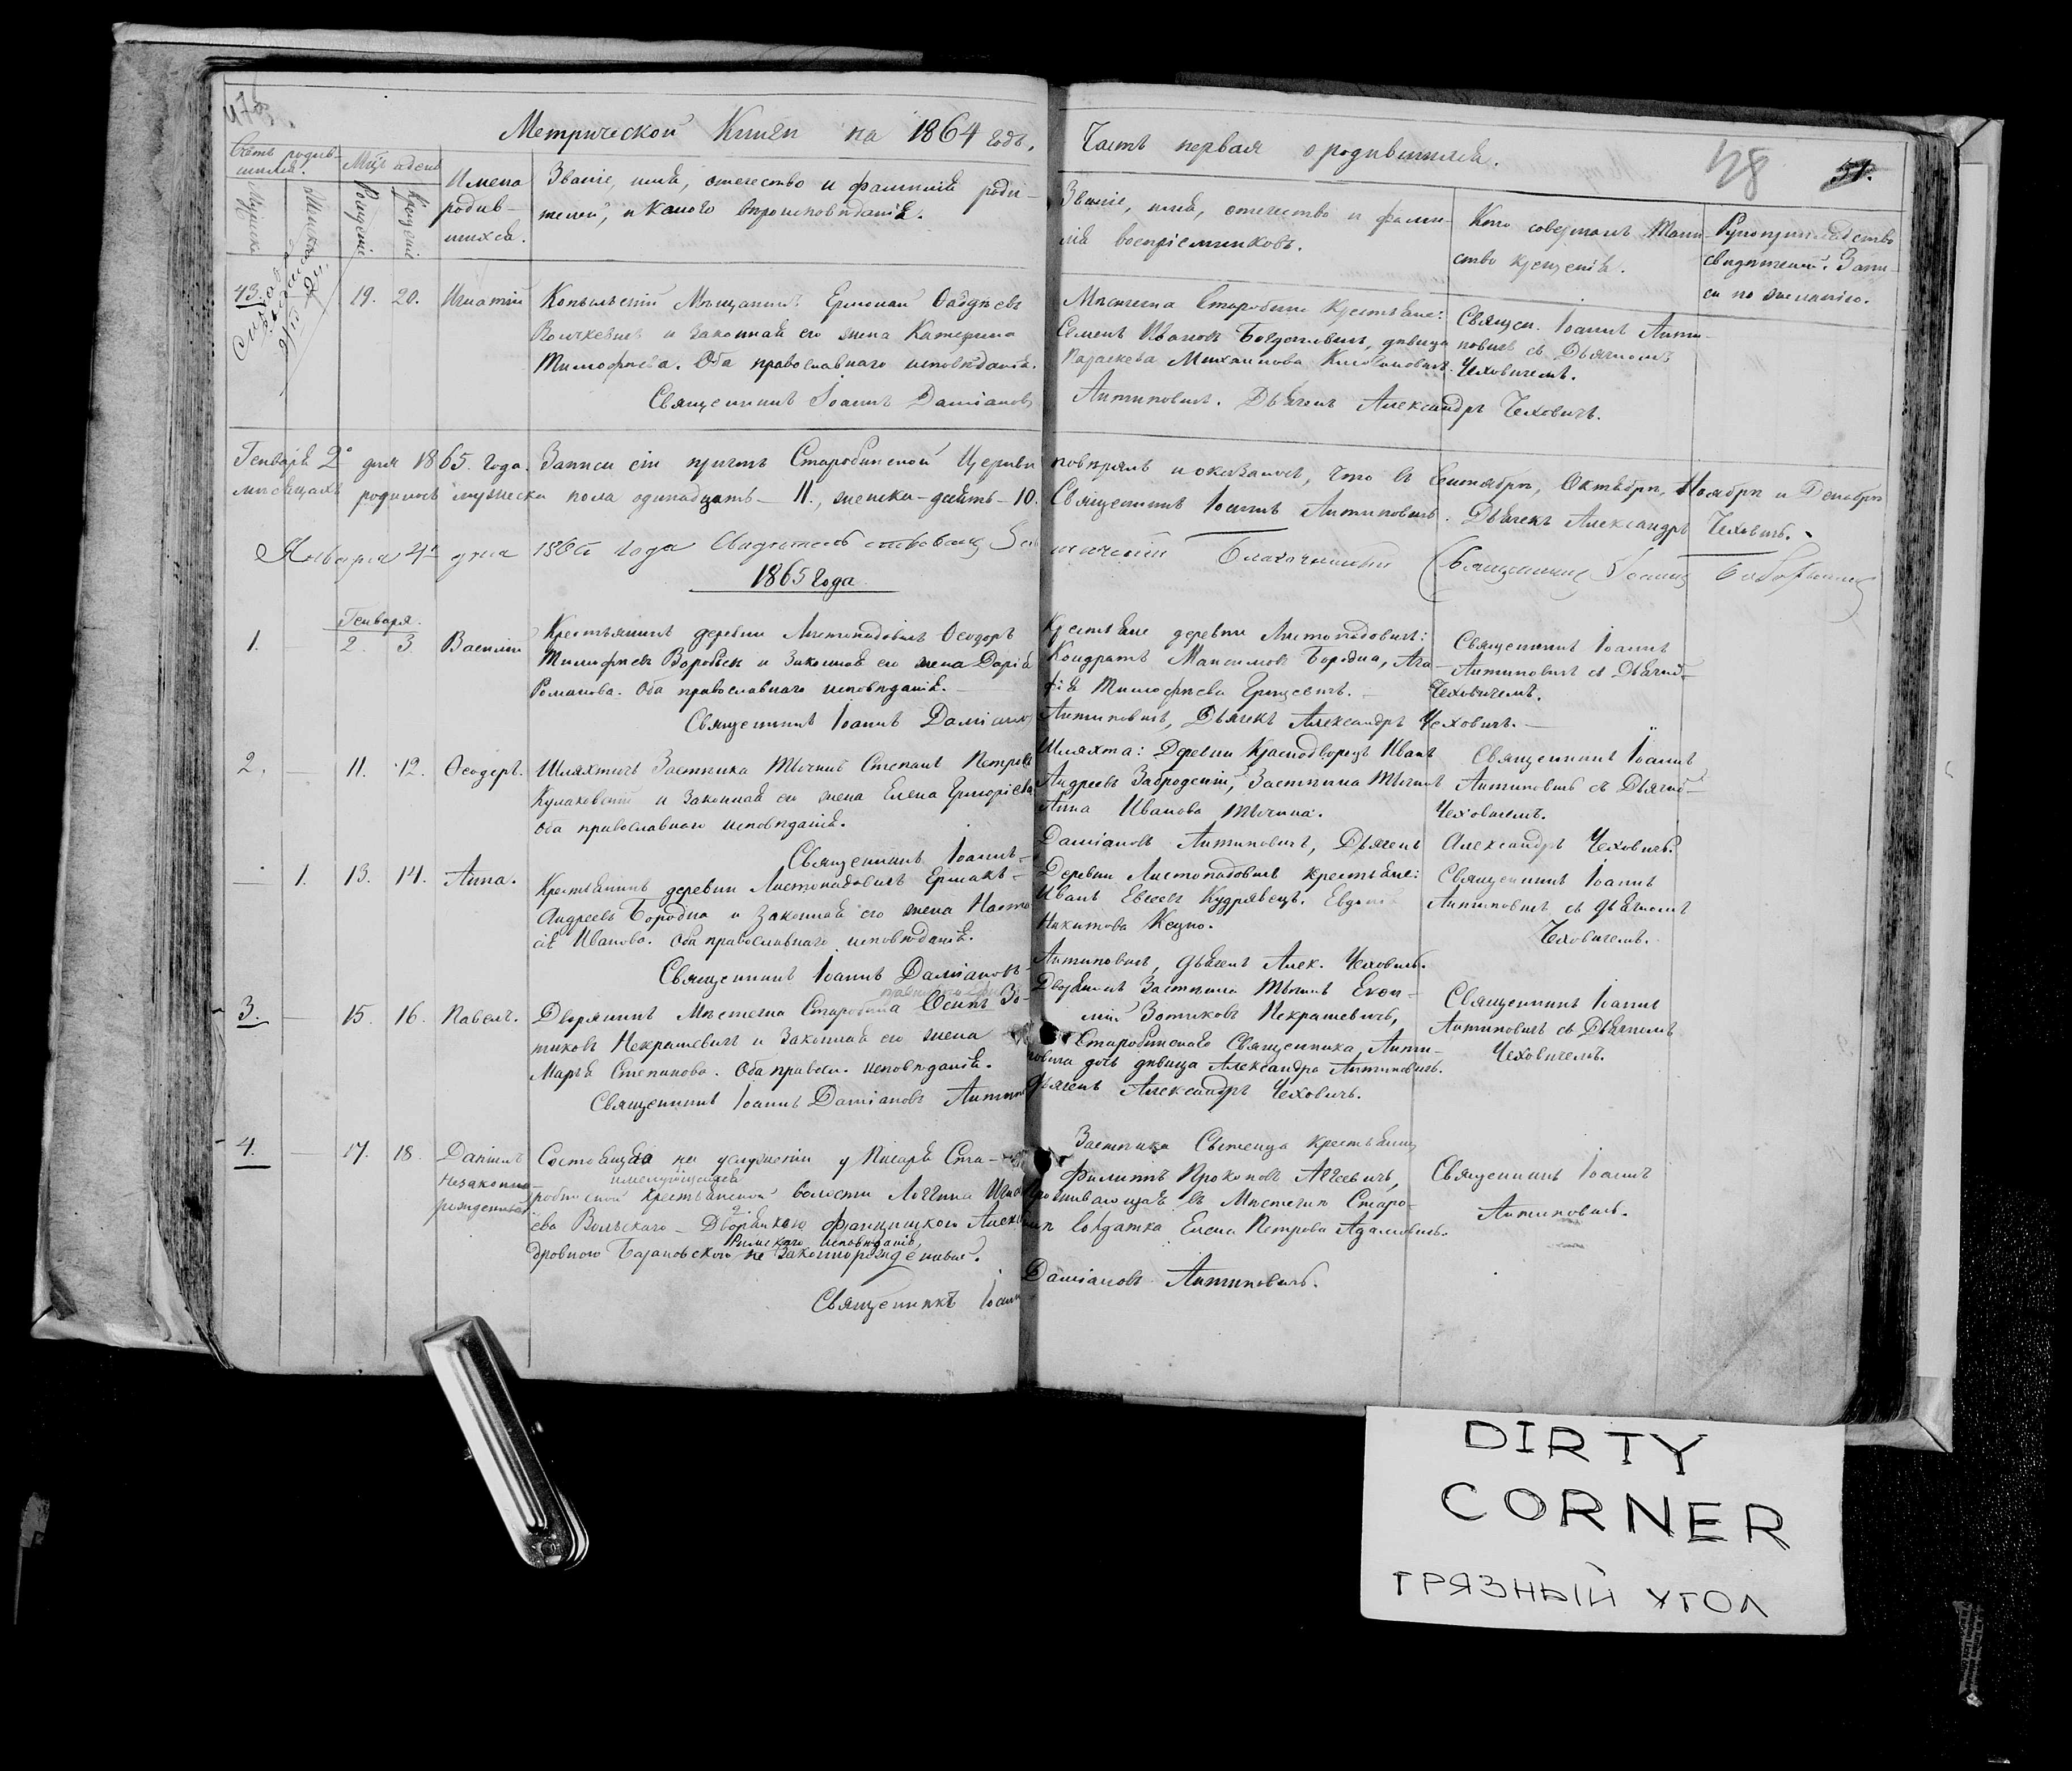 Метрической Книги на 1864 годъ,
Часть первая о родившихся.
58
51.
Счетъ родив-
шихся.
Мужска
Женска
Мѣц. и день
Рожденія
Крещенія
Имена
родив-
шихся.
Званіе, имя, отечество и фамилія роди-
телей, и какого вѣроисповѣданія.
Званіе, имя, отечество и фами-
лія воспріемниковъ.
Кто совершалъ Таин-
ство крещенія.
Рукоприкладство
свидѣтелей. Запи-
си по желанію.
43.
19. 20.
Игнатій
Копыльскій Мѣщанинъ Ермолай
и законная его жена Катерина
Тимофѣева. Оба православнаго исповѣданія.
Священникъ Іоаннъ Даміановъ
Мѣстечка Старобина Крестьяне:
Семенъ Ивановъ Богдановичъ, дѣвица
Параскева Михаилова
Антиповичъ. Дьячекъ Александръ Чеховичъ.
Священ. Іоаннъ Анти-
повичъ съ Дьячкомъ
Чеховичемъ.
Генваря 2º дня 1865. года. Записи сіи причтъ Старобинской Церкви повѣрялъ и оказалось, что въ Сентябрѣ, Октябрѣ, Ноябрѣ и Декабрѣ
мѣсяцахъ родилось мужеска пола одинадцать - 11., женска - десять - 10. Священникъ Іоаннъ Антиповичъ. Дьячекъ Александръ Чеховичъ.
Января 4º дня 1865 года Свидѣтельствовалъ Благочинный Священникъ Іоаннъ
1865 Года
Генваря.
1.
2. 3.
Василій
Крестьянинъ деревни Листопадовичъ Ѳеодоръ
Тимофѣевъ Воробьек и Законная его жена Дарія
Романова. Оба православнаго исповѣданія. -
Священникъ Іоаннъ Даміановъ
Крестьяне деревни Листопадовичъ:
Кондратъ Максимовъ Бородка, Ага-
фія Тимофѣева Грицевичъ. -
Антиповичъ, Дьячекъ Александръ Чеховичъ. -
Священникъ Іоаннъ
Антиповичъ съ Дьячко-
Чеховичемъ.
2. -
11. 12.
Ѳеодоръ.
Шляхтичъ Застѣнка Тычинъ Степанъ Петровъ
Кулаковскій и Законная его жена Елена Григоріева
Оба православнаго исповѣданія.
Священникъ Іоаннъ -
Шляхта: Деревни Краснодворцъ Иванъ
Андреевъ Забродскій, Застѣнка Тычинъ
Анна Иванова Тычина.
Даміановъ Антиповичъ, Дьячекъ Александръ Чеховичъ.
Священникъ Іоаннъ
Антиповичъ съ Дьячко-
Чеховичемъ.
- 1.
13. 14.
Анна.
Крестьянинъ деревни Листопадовичъ Ермакъ -
Андреевъ Бородка и Законная его жена Наста-
сія Иванова. Оба православнаго исповѣданія.
Священникъ Іоаннъ Даміановъ -
Деревни Листопадовичъ крестьяне:
Иванъ Евсеевъ Кудрявецъ. Евдокія
Никитова Кецко.
Антиповичъ, дьячекъ Алек. Чеховичъ.
Священникъ Іоаннъ
Антиповичъ съ дьячкомъ
Чеховичемъ.
3. -
15. 16.
Павелъ.
Дворянинъ Мѣстечка Старобина Осипъ Зо-
тиковъ Некрашевичъ и Законная его жена
Марья Степанова. Оба правосл. исповѣданія.
Священникъ Іоаннъ Даміановъ Антиповичъ
Дворянинъ Застѣнка Тычинъ
Зотиковъ Некрашевичъ,
Старобинскаго Священника Анти-
повича дочь дѣвица Александра Антиповичъ.
Дьячекъ Александръ Чеховичъ.
Священникъ Іоаннъ
Антиповичъ съ Дьячкомъ
Чеховичемъ.
4. -
17. 18.
Даніилъ
Незаконно-
рожденный
Состоящая на услуженіи у Писаря Ста-
робинской крестьянской волости Логгина
Дворянкою Францишкою Алексан-
дровною Барановскою не Законнорожденный.
Римскаго исповѣданія,
Священникъ Іоаннъ
Застѣнка Сытенца крестьянинъ
Филиппъ Прокоповъ
проживающая въ Мѣстечкѣ Старо-
бинѣ солдатка Елена Петрова Адамовичъ.
Даміановъ Антиповичъ.
Священникъ Іоаннъ
Антиповичъ.
DIRTY
CORNER
ГРЯЗНЫЙ УГОЛ